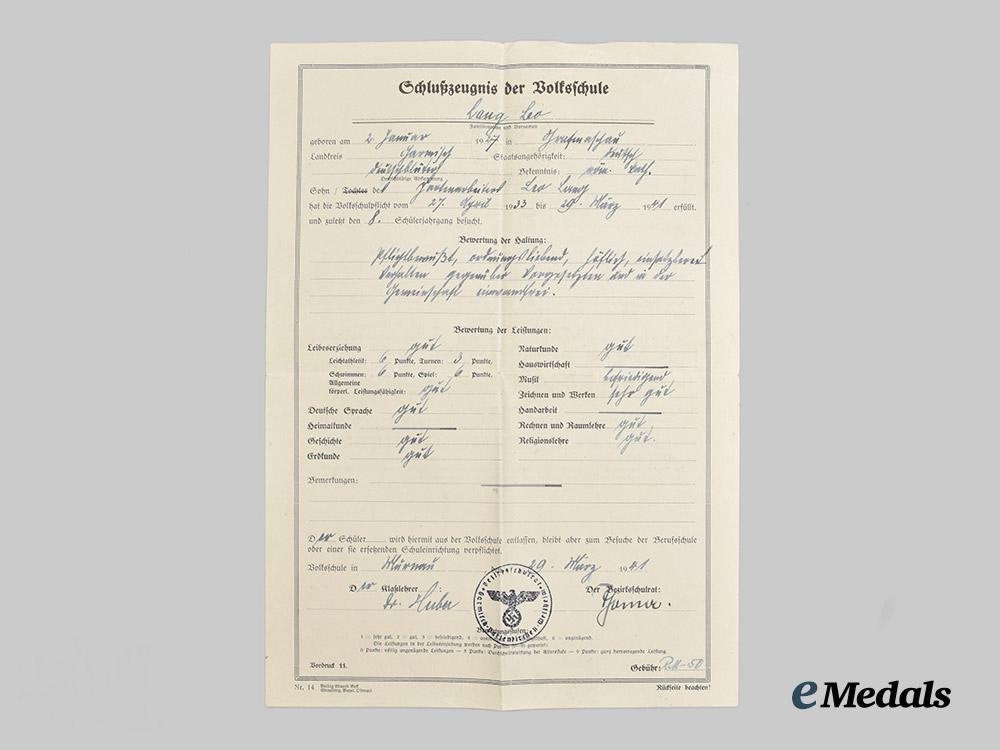 Schlußzeugnis der Volksschule
Lang Leo
Familienname und Vorname
geboren am 2. Januar 1927 in Grafenaschau
Landkreis Garmisch Staatsangehörigkeit: deutsch
deutschblütig Bekenntnis: röm. kath.
Sohn / Tochter des Leo Lang
hat die Volksschulpflicht vom 27. April 1933 bis 29. März 1941 erfüllt.
und zuletzt den 8. Schülerjahrgang besucht.
Bewertung der Haltung:
Pflichtbewußt, ordnungsliebend, höflich, einsatzbereit
Verhalten gegenüber Vorgesetzten und in der
Gemeinschaft einwandfrei.
Bewertung der Leistungen:
Leibeserziehung gut
Leichtathletik: 6 Punkte, Turnen: 3 Punkte,
Schwimmen: 6 Punkte, Spiel: 6 Punkte.
Allgemeine
körperl. Leistungsfähigkeit: gut
Deutsche Sprache gut
Heimatkunde
Geschichte gut
Erdkunde gut
Naturkunde gut
Hauswirtschaft
Musik befriedigend
Zeichnen und Werken sehr gut
Handarbeit
Rechnen und Raumlehre gut
Religionslehre gut.
Bemerkungen:
Der Schüler wird hiermit aus der Volksschule entlassen, bleibt aber zum Besuche der Berufsschule
oder einer sie ersetzenden Schuleinrichtung verpflichtet.
Volksschule in Murnau, 29. März 1941
Der Klaßlehrer: Der Bezirksschulrat:
Dr. Huber Thoma.
1 = sehr gut, 2 = gut, 3 = befriedigend, 4 = 6 = ungenügend.
Die Leistungen in der Leibeserziehung werden nach Punkten gewertet:
0 Punkte: völlig ungenügende Leistungen — 5 Punkte: Durchschnittsleistung der Altersstufe — 9 Punkte: ganz hervorragende Leistung.
Vordruck 11. Gebühr: RM -.50
Nr. 14 Rückseite beachten!
eMedals